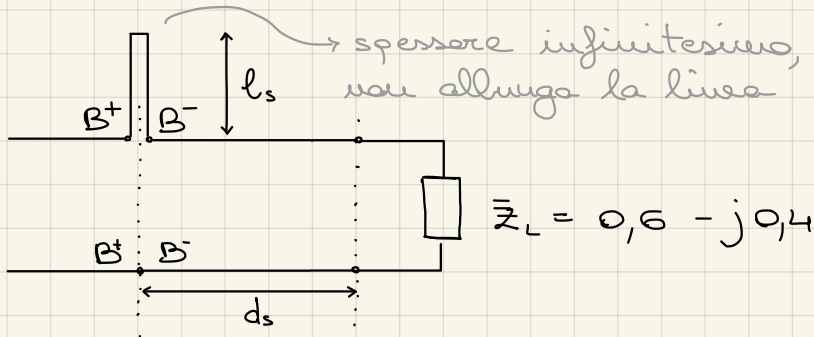 spessore infinitesimo,
non allunga la linea
ℓs
B⁺ B⁻
z̄L = 0,6 - j 0,4
B⁺ B⁻
ds